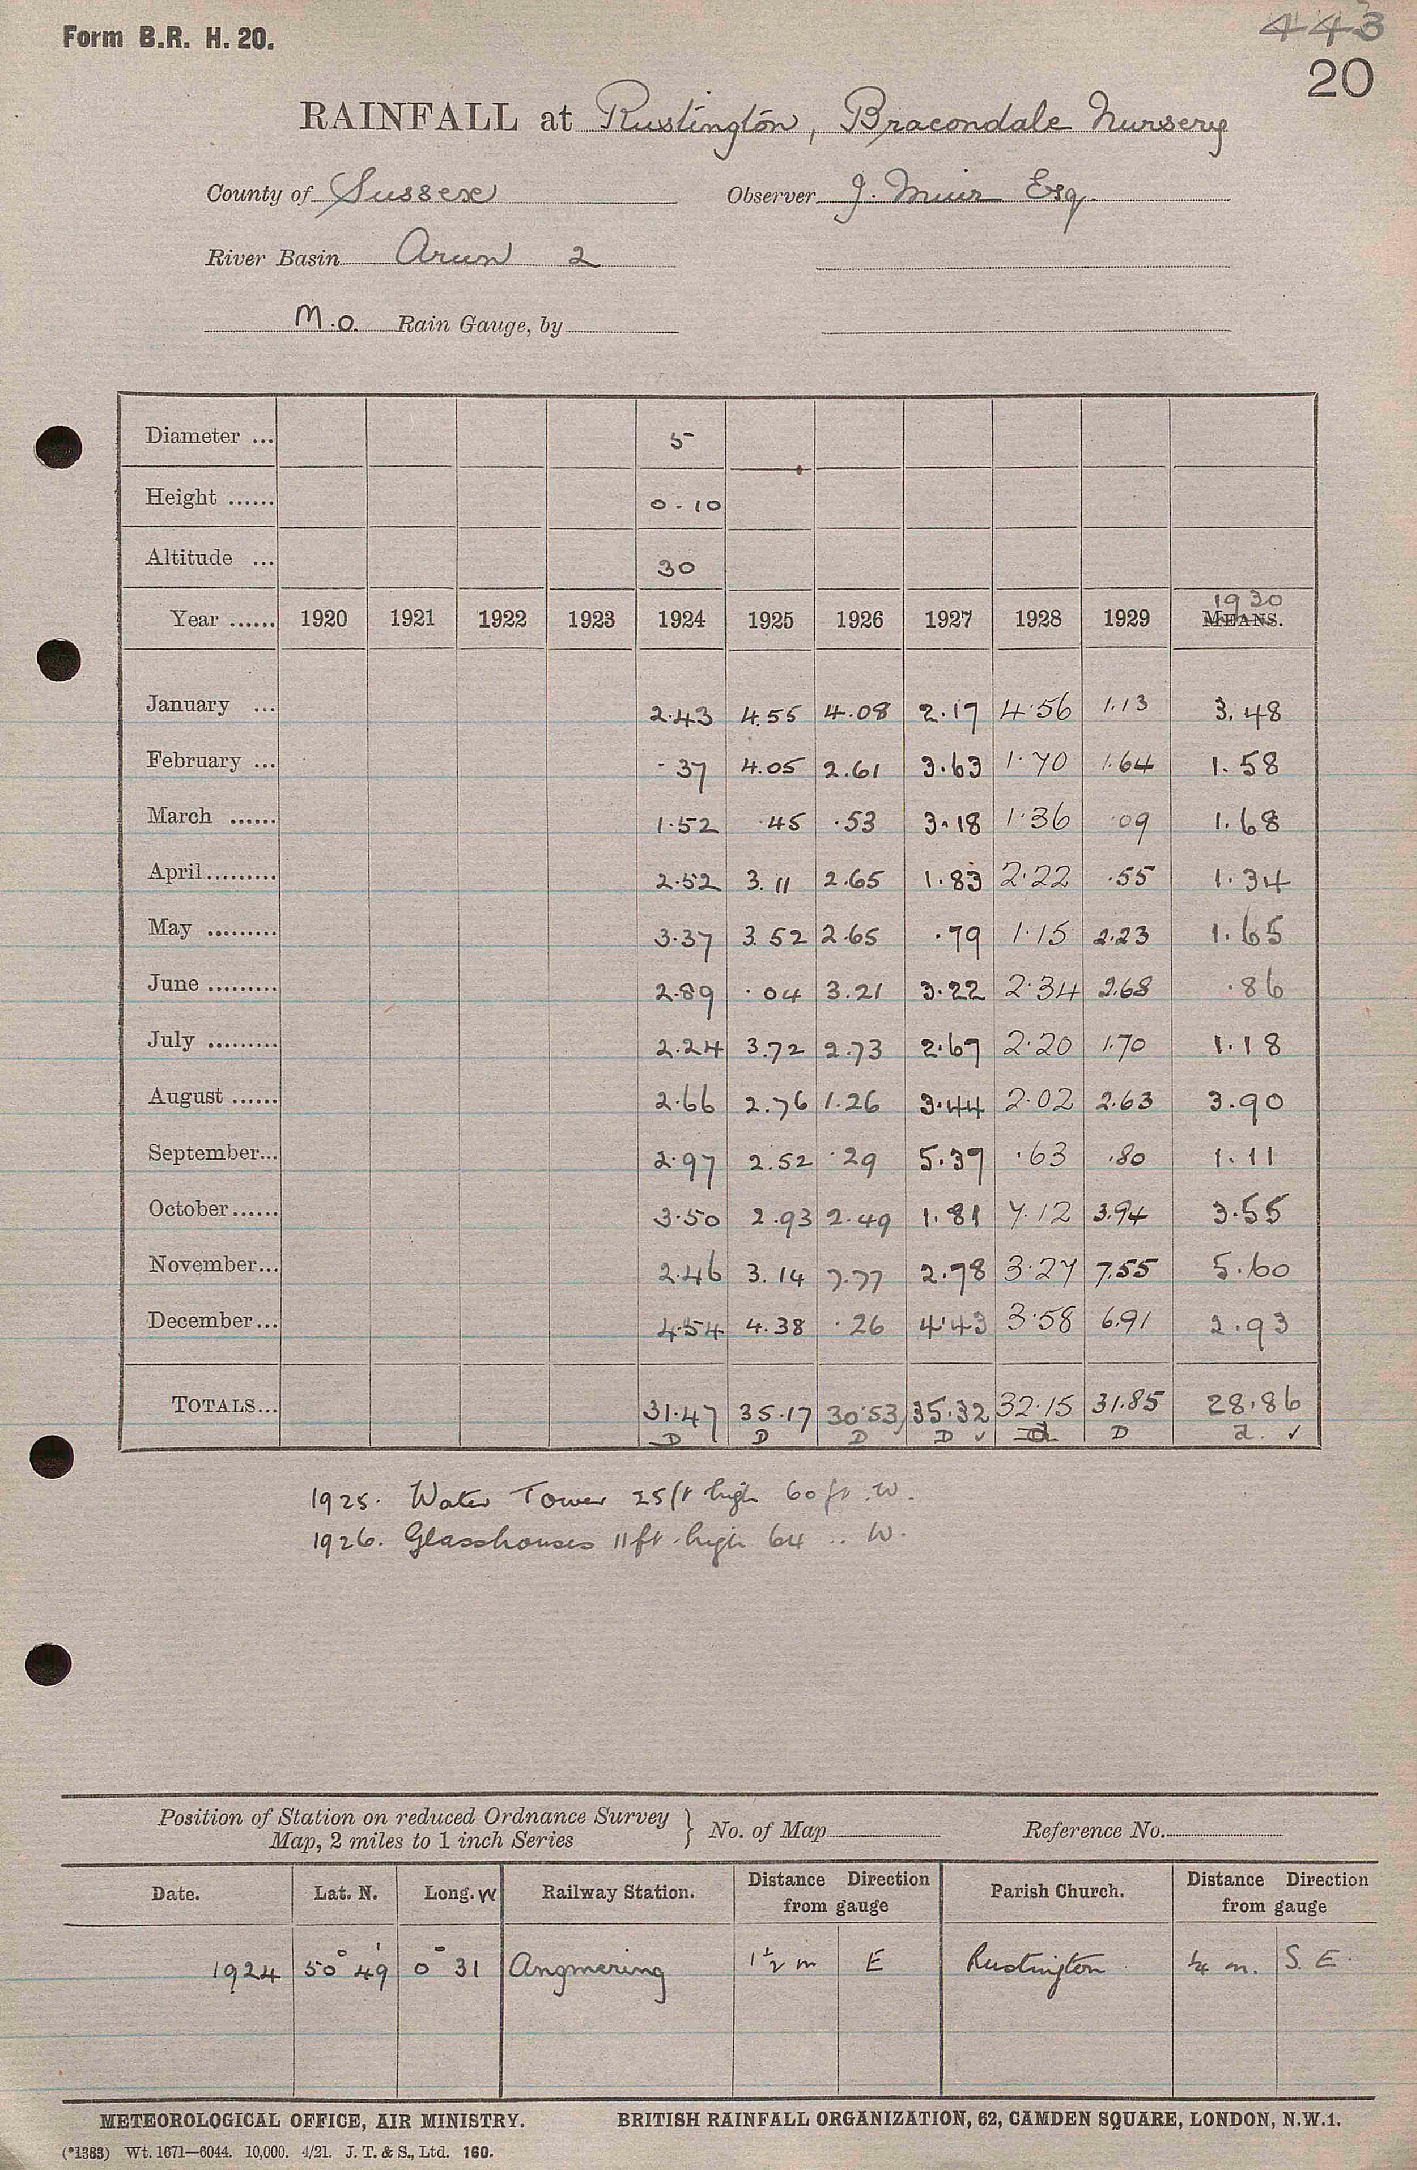 Form B.R. H. 20.
443
20
RAINFALL at Rustington, Bracondale Nursery
County of Sussex Observer J. Muir Esq.
River Basin Arun 2
M.O. Rain Gauge, by
Diameter ... 5
Height ...... 0-10
Altitude ... 30
1930
Year ...... 1920 1921 1922 1923 1924 1925 1926 1927 1928 1929 MEANS.
January ... 2.43 4.55 4.08 2.17 4.56 1.13 3.48
February ... .37 4.05 2.61 3.63 1.70 1.64 1.58
March ...... 1.52 .45 .53 3.18 1.36 .09 1.68
April......... 2.52 3.11 2.65 1.83 2.22 .55 1.34
May ......... 3.37 3.52 2.65 .79 1.15 2.23 1.65
June ......... 2.89 .04 3.21 3.22 2.34 2.68 .86
July ......... 2.24 3.72 2.73 2.67 2.20 1.70 1.18
August ...... 2.66 2.76 1.26 3.44 2.02 2.63 3.90
September... 2.97 2.52 .29 5.37 .63 .80 1.11
October...... 3.50 2.93 2.49 1.81 7.12 3.94 3.55
November... 2.46 3.14 7.77 2.78 3.27 7.55 5.60
December... 4.54 4.38 .26 4.43 3.58 6.91 2.93
TOTALS... 31.47 35.17 30.53 35.32 32.15 31.85 28.86
D D D D ✓ d D d. ✓
1925. Water Tower 25ft high 60ft. W.
1926. Glasshouses 11ft. high 64 .. W.
Position of Station on reduced Ordnance Survey
Map, 2 miles to 1 inch Series } No. of Map Reference No.
Date. Lat. N. Long. W Railway Station. Distance Direction from gauge Parish Church. Distance Direction from gauge
1924 50° 49' 0° 31 Angmering 1½ m E Rustington ¼ m. S. E.
METEOROLOGICAL OFFICE, AIR MINISTRY. BRITISH RAINFALL ORGANIZATION, 62, CAMDEN SQUARE, LONDON, N.W.1.
(*1383) Wt. 1671—6044. 10,000. 4/21. J. T. & S., Ltd. 160.